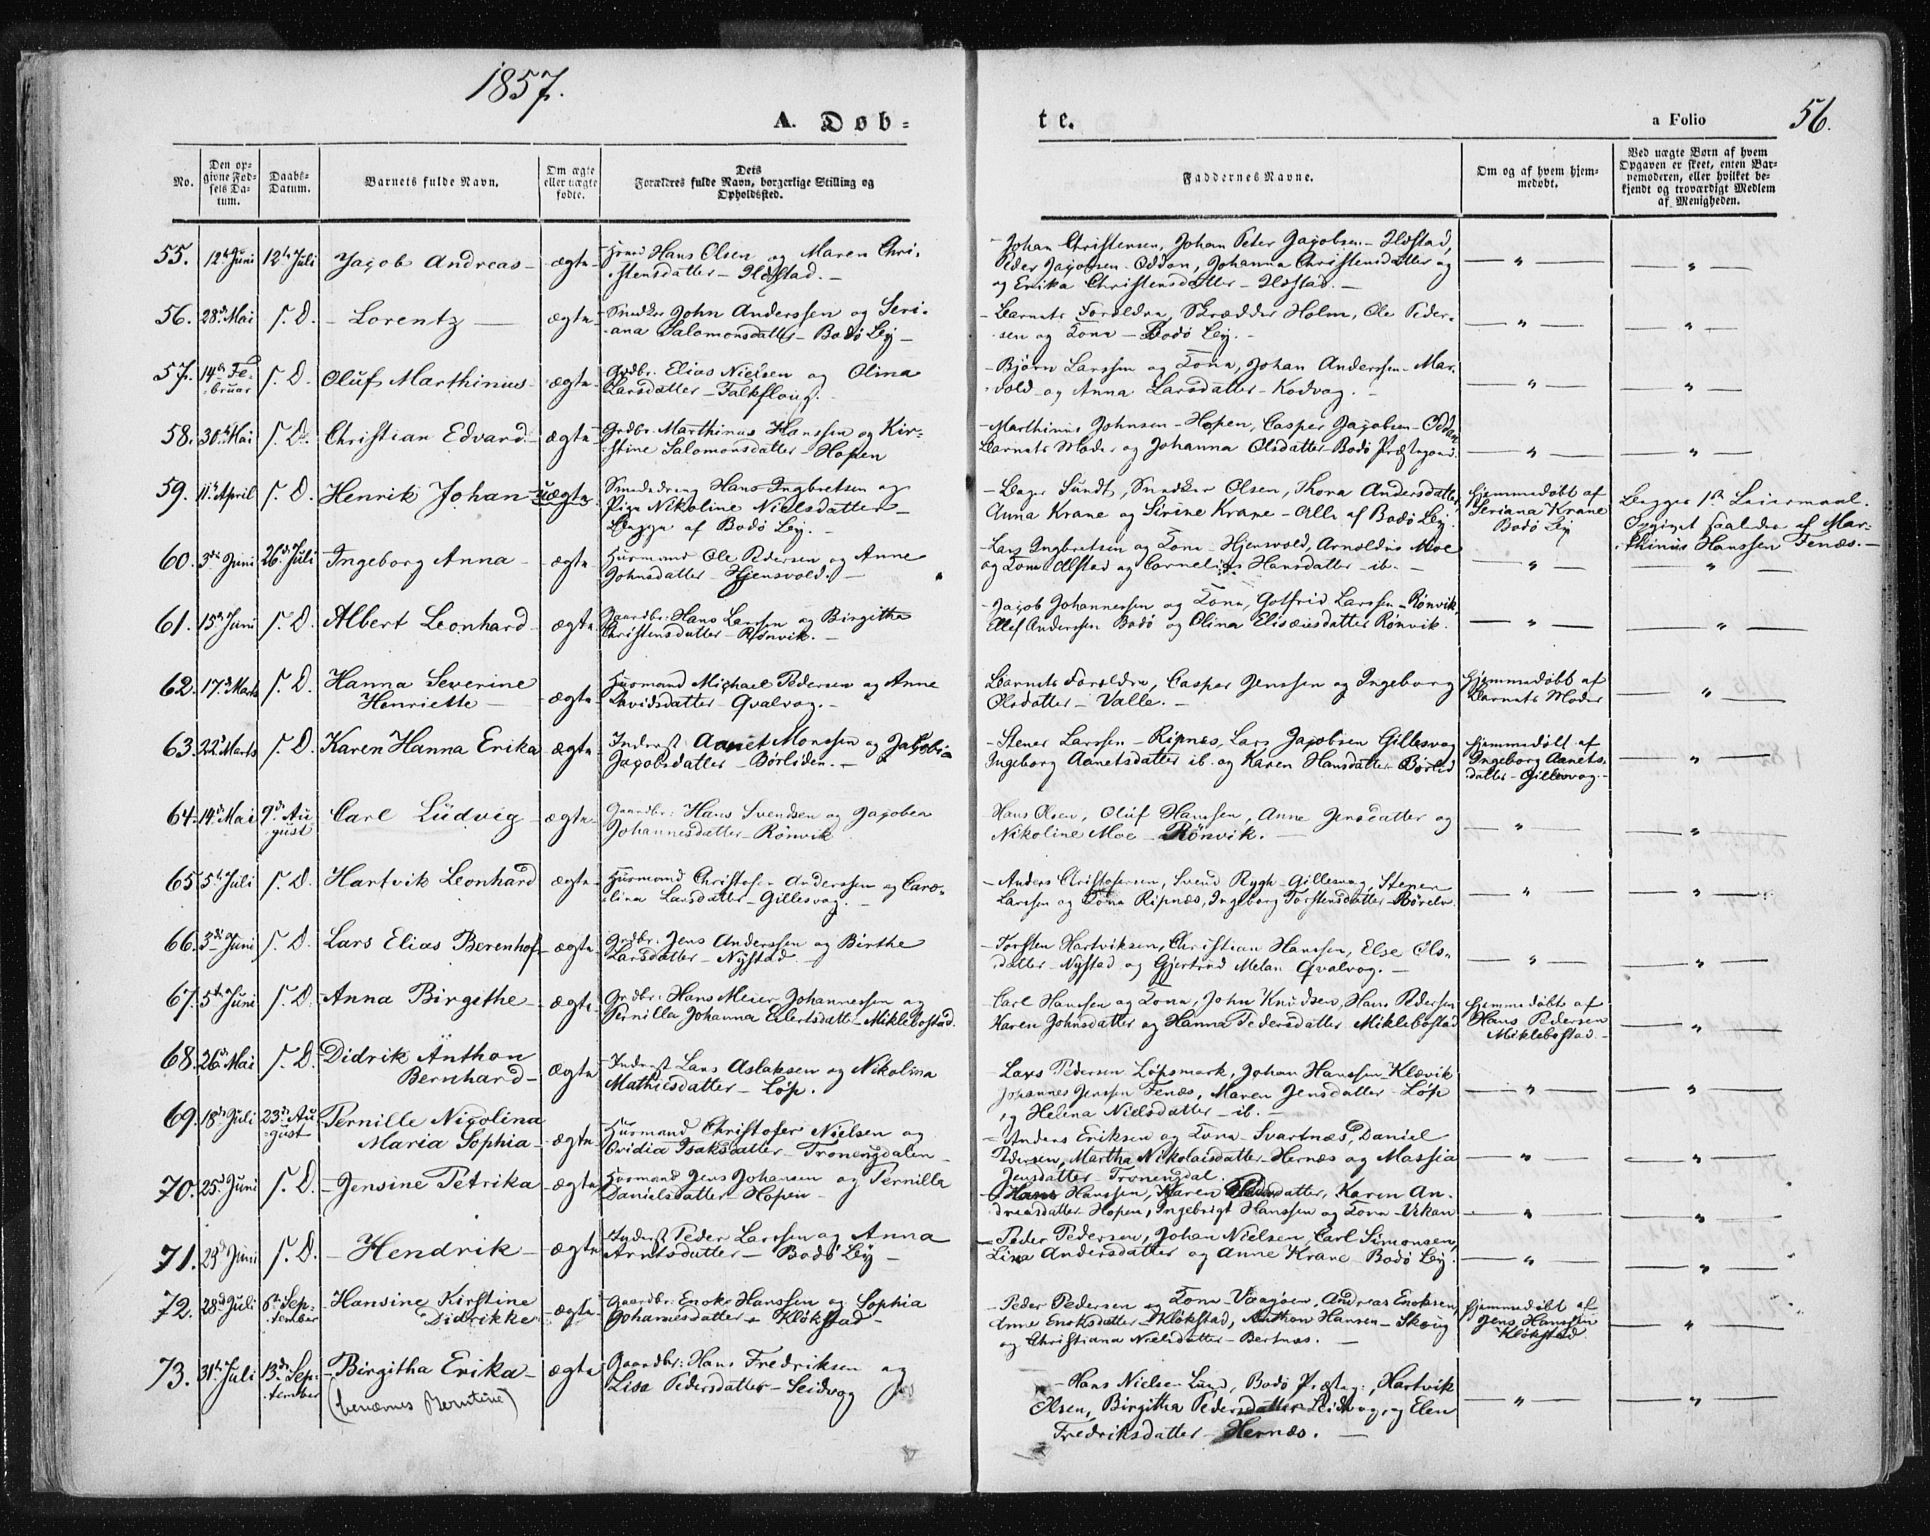 1857.
A. Døb-
te.
a Folio
56.
No.
Den op-
givne Fød-
sels Da-
tum.
Daabs-
Datum.
Barnets fulde Navn.
Om ægte
eller uægte
fødte.
Dets
Forældres fulde Navn, borgerlige Stilling og
Opholdssted.
Faddernes Navne.
Om og af hvem hjem-
medøbt.
Ved uægte Børn af hvem
Opgaven er skeet, enten Bar-
nemoderen, eller hvilket be-
kjendt og troværdigt Medlem
af Menigheden.
55. 12te Juni 12te Juli Jacob Andreas - ægte - Hans Olsen og Maren Chri-
stensdatter -
- Johan Christensen, Johan Peter Jacobsen -
Peder Jacobsen - Oddan, Johanna Christensdatter og
og Erika Christensdatter -
56. 28de Mai s. D. - Lorentz - ægte - Snedker John Anderssen og Seri-
ana Salomonsdatter - Bodø By -
- Barnets Forældre, Skrædder Holm, Ole Peder-
sen og Kone - Bodø By. -
57. 14de Fe-
bruar s. D. Oluf Marthinus - ægte - Grdbr. Elias Nielsen og Olina
Larsdatter - Falkfloug. -
- Bjørn Larssen og Kone, Johan Anderssen - Mar-
vold og Anna Larsdatter - Kodvag. -
58. 30te Mai s. D. Christian Edvard - ægte - Grdbr. Marthinus Hanssen og Kir-
stine Salomonsdatter - Hopen
- Marthinus Johnsen - Hopen, Casper Jacobsen - Oddan
Barnets Moder og Johanna Olsdatter Bodø Præstegaard.
59. 11te April s. D. Henrik Johan - uægte - Smededreng Hans Ingbretsen og
Pige Nikoline Nielsdatter -
Begge af Bodø By. -
- Bager Sundt, Snedker Olsen, Thona Andersdatter
Anna Krane og Serine Krane - Alle af Bodø By.
Hjemmedøbt af
Seriana Krane
Bodø By
Begges 1ste Leiermaal.
Opgivet Faaldre af Mar-
thinus Hanssen Fenæs. -
60. 3die Juni 26de Juli Ingeborg Anna - ægte - Husmand Ole Pedersen og Anne
Johnsdatter - Hjensvold. -
- Lars Ingbretsen og Kone - Hjensvold, Arnoldus Moe
og Kone Alstad og Cornelius Hansdatter - ib. -
61. 15de Juni s. D. Albert Leonhard - ægte - Gaardbr: Hans Larsen og Birgitha
Christensdatter - Rønvik. -
- Jacob Johannessen og Kone, Gotfrid Larssen - Rønvik,
Ellef Anderssen Bodø og Olina Elisæusdatter Rønvik.
62. 17de Marts s. D. Hanna Severine
Henriette - ægte - Husmand Michael Pedersen og Anne
Davidsdatter - Qvalvog. -
Barnets Forældre, Casper Jenssen og Ingeborg
Olsdatter - Valle. -
Hjemmedøbt af
Barnets Moder
63. 22de Marts s. D. Karen Hanna Erika ægte - Inderst Aanet Monssen og Jakobia
Jacobsdatter - Børliden. -
- Stener Larssen - Ripnes, Lars Jacobsen Gillesvog
Ingeborg Aanetsdatter ib. og Karen Hansdatter Børlid
Hjemmedøbt af
Ingeborg Aanets-
datter - Gillesvog. -
64. 14de Mai 9de Au-
gust Carl Ludvig - ægte - Gaardbr: Hans Svendsen og Jacobea
Johannesdatter - Rønvik
Hans Olsen, Oluf Hanssen, Anne Jensdatter og
Nikoline Moe - Rønvik. -
65. 5te Juli s. D. Hartvik Leonhard ægte - Husmand Christofer Anderssen og Caro-
lina Larsdatter - Gillesvog. -
- Anders Christofersen, Svend Rygh - Gillesvog, Stener
Larssen og Kone Ripnæs, Ingeborg Torstensdatter - Børelv
66. 3die Juni s. D. Lars Elias Berenhof - ægte - Grdbr. Jens Anderssen og Birthe
Larsdatter - Nystad -
- Torsten Hartviksen, Christian Hanssen, Else Ols-
datter - Nystad og Gjertrud Melan Qvalvog. -
67. 5te Juni s. D. Anna Birgithe - ægte - Grdbr: Hans Meier Johannessen og
Pernille Johanna Eilertsdatter - Miklebostad.
Carl Hanssen og Kone, John Knudsen, Hans Pedersen
Karen Johnsdatter og Hanna Pedersdatter Miklebostad
Hjemmedøbt af
Hans Pedersen
Miklebostad. -
68. 26de Mai s. D. Didrik Anthon
Bernhard - ægte Inderst Lars Aslaksen og Nikolina
Mathisdatter - Løp.
Lars Pedersen Løpsmark, Johan Hanssen - Klævik
Johannes Jenssen Fenæs, Maren Jensdatter - Løp
og Helena Nielsdatter - ib. -
69. 18de Juli 23de Au-
gust Pernille Nicolina
Maria Sophia - ægte Husmand Christofer Nielsen og
Ovidia Isaksdatter - Tronengdalen -
- Anders Eriksen og Kone - Svartnæs, Daniel
Pedersen, Martha Nikolaisdatter - Hernæs og Massia
Jensdatter - Tronengdal
70. 25de Juni s. D. - Jensine Petrika - ægte - Husmand Jens Johansen og Pernilla
Danielsdatter - Hopen -
- Hans Hanssen, Karen Pedersdatter, Karen An-
dreasdatter - Hopen, Ingebrigt Hanssen og Kone - Vikan
71. 23de Juni s. D. - Hendrik - ægte Inderst Peder Larssen og Anna
Arntsdatter - Bodø By -
- Peder Pedersen, Johan Nielsen, Carl Simonsen,
Lina Andersdatter og Anne Krane Bodø By.
72. 28de Juli 6te Sep-
tember - Hansine Kirstine
Didrikke - ægte - Gaardbr: Enok Hanssen og Sophia
Johannesdatter - Kløkstad -
- Peder Pedersen og Kone - Vaagøen, Andreas Enoksen,
Anne Enoksdatter - Kløkstad, Anthon Hansen - Skoug
og Christiana Nielsdatter - Bertnes. -
Hjemmedøbt af
Jens Hanssen
Kløkstad
73. 31te Juli 13de Sep-
tember - Birgitha Erika -
(benævnes Berntine) ægte Gaardbr: Hans Fredriksen og
Lisa Pedersdatter - Seidvog
- Hans Nielsen Lund, Bodø Præsteg:, Hartvik
Olsen, Birgitha Pedersdatter Seidvog, og Elen
Fredriksdatter - Hernæs. -